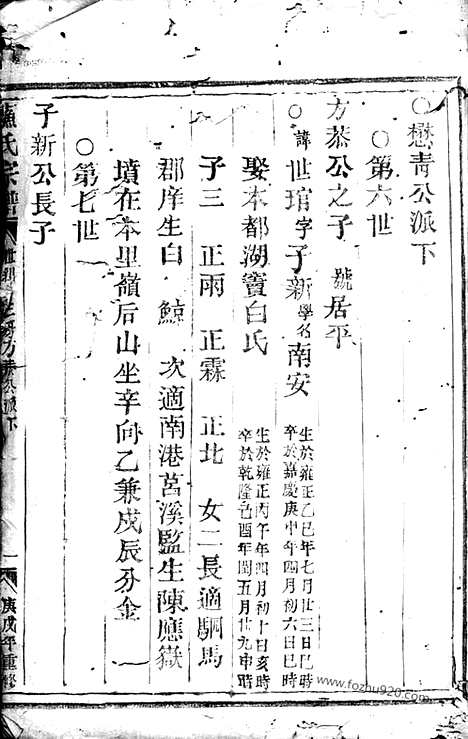 ○懋青公派下
○第六世
方恭公之子 號居平
○諱世琯字子新學名南安 生於雍正乙巳年七月廿三日巳時 卒於嘉慶庚申年四月初六日巳時
娶本都湖竇白氏 生於雍正丙午年四月初十日亥時 卒於乾隆己酉年閏五月廿九申時
子三 正雨 正霖 正北 女二長適駟馬
郡庠生白 鯨 次適南港莒溪監生陳應嶽
墳在本里嶺后山坐辛向乙兼戍辰分金
○第七世
子新公長子
氏宗譜
方恭公派下
一
庚戌年重修
www.fozhu920.com